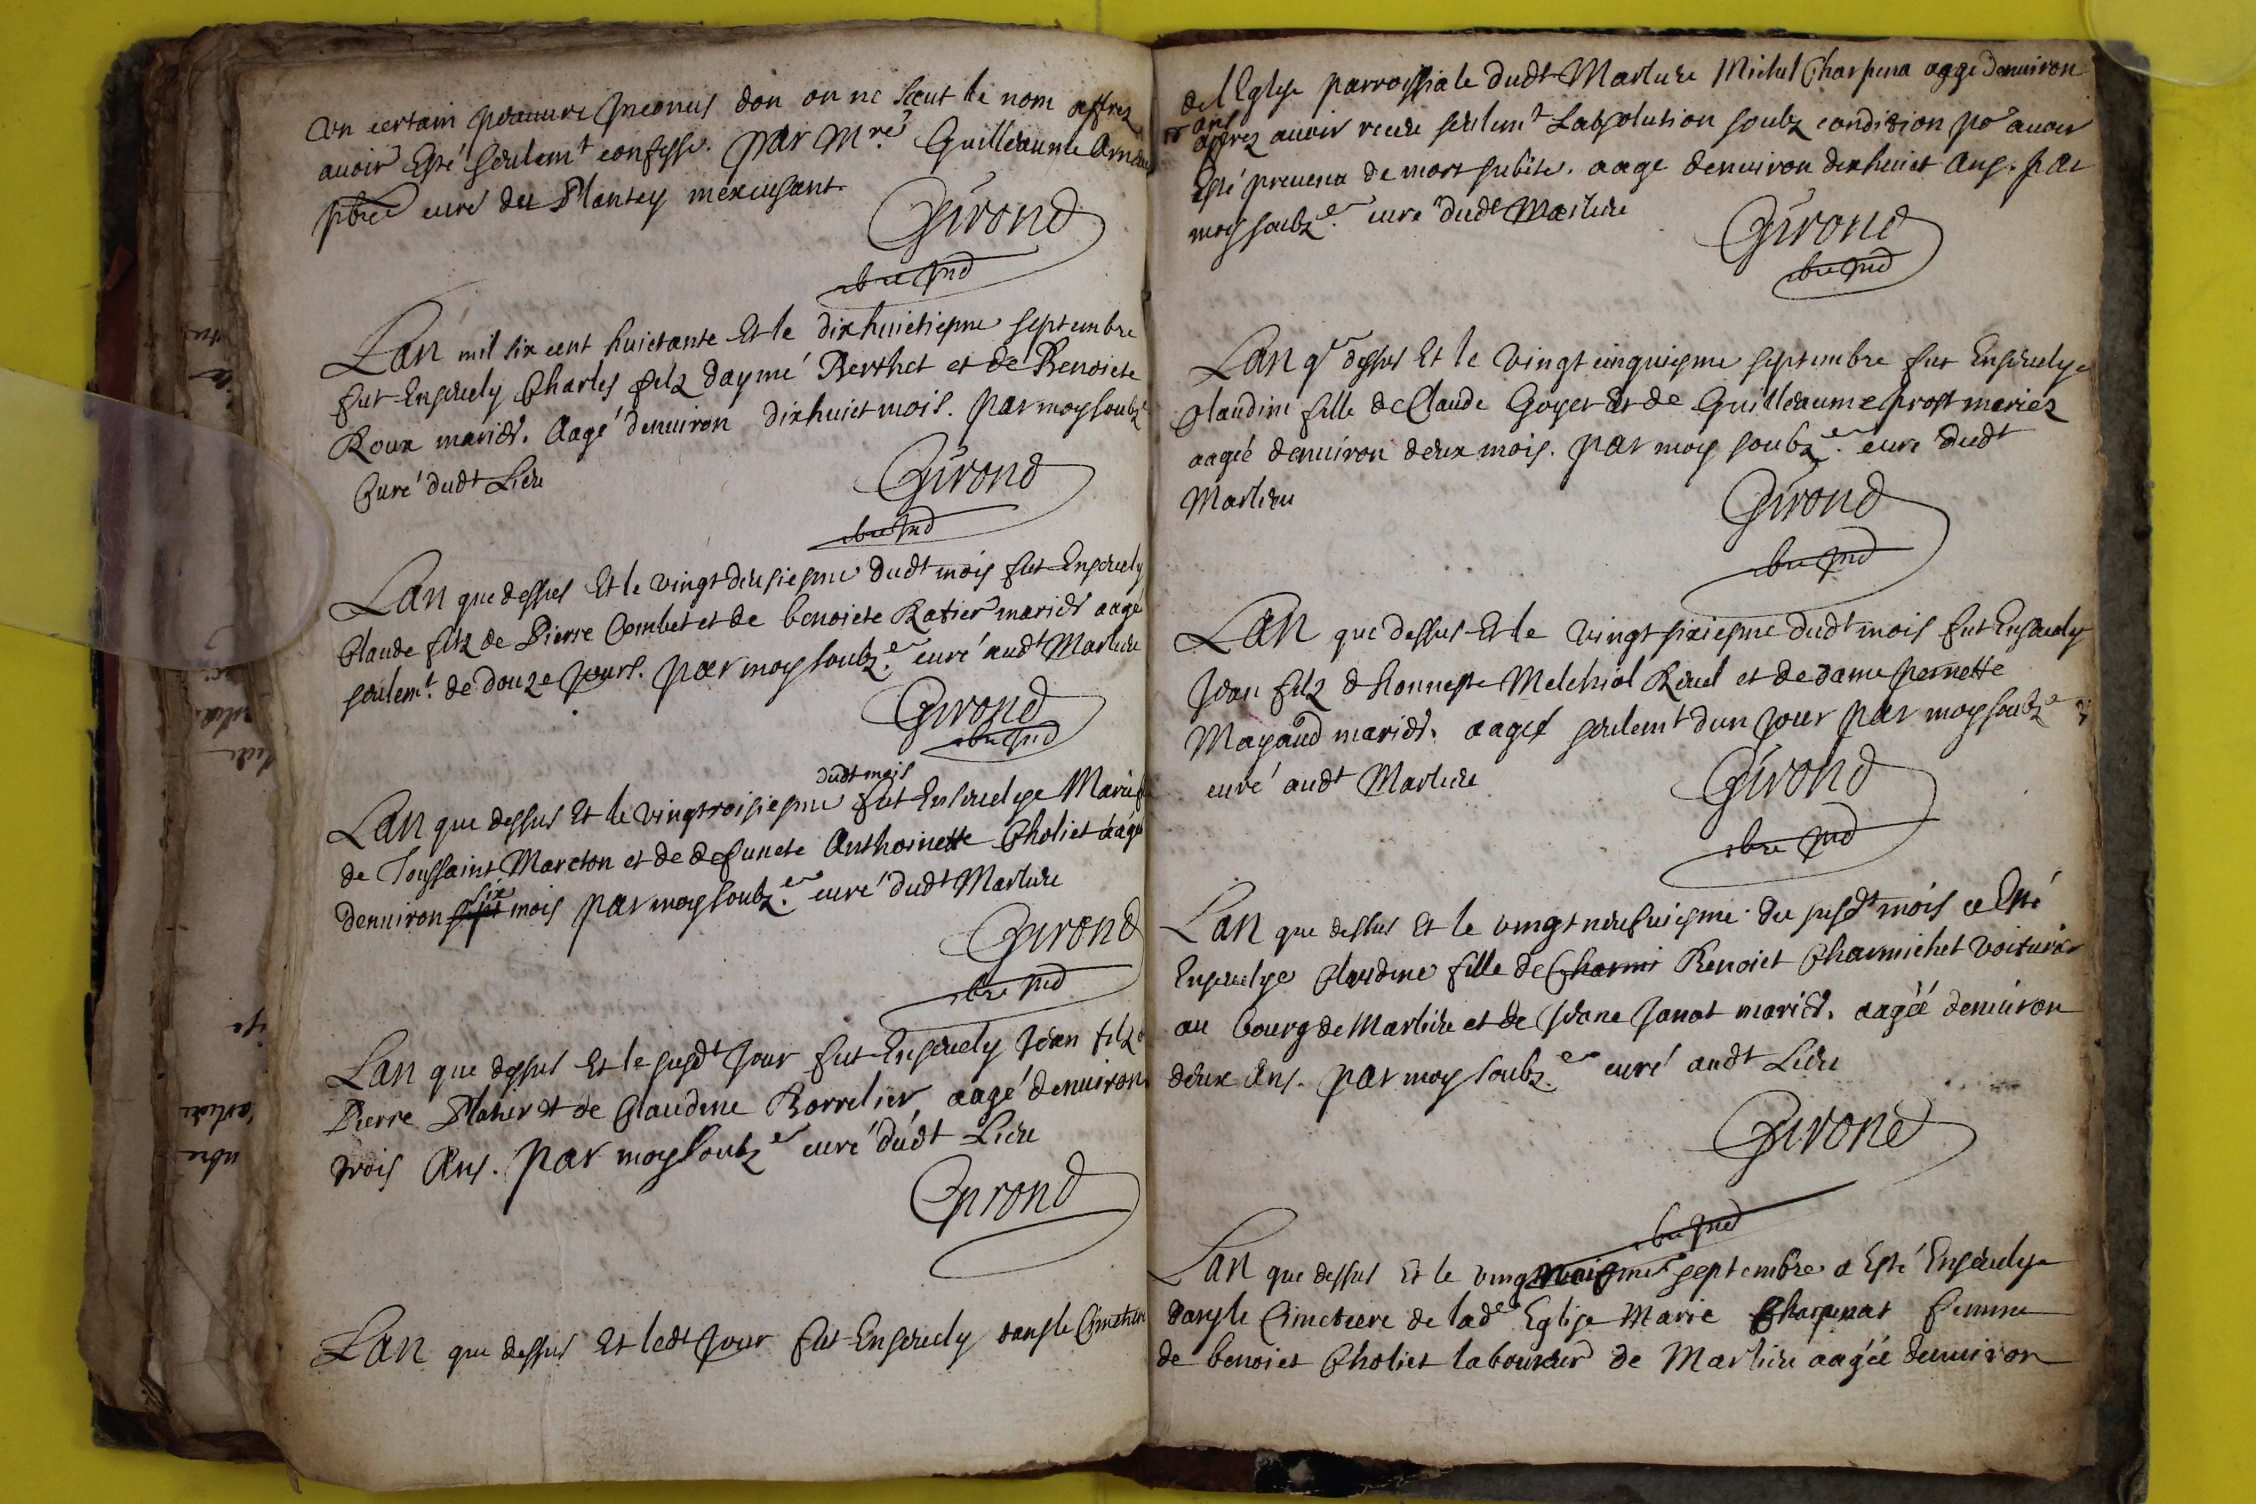 un certain pauure Inconus don on ne sceut le nom apprez
auoir Esté seulemt confessé. par Mre Guilleaume
pbre curé du Plantey mexcusant.
Girond
Lan mil six cent huictante Et le dixhuictiesme septembre
fut Enseuely Charles filz daymé Berthet et de Benoiete
Roux mariés. Aagé denuiron dixhuict mois. par moy soubz
Curé dudt Lieu
Girond
Lan que dessus Et le vingtdeusiesme dudt mois fut Enseuely
Claude filz de Pierre Combet et de benoiete Ratier mariés aagé
seulemt. de douze jours. par moy soubz.e curé audt Marlieu
Girond
dudt mois
Lan que dessus Et le vingtroisiesme fut Enseuelye Marie
de Toussaint Marcton et de defuncte Anthoinette Choliet aagé
six
denuiron mois par moy soubz.e curé dudt Marlieu
Girond
Lan que dessus Et le susdt Jour fut Enseuely Jean filz
Pierre Plater et de Claudine Borrelier aagé denuiron
trois Ans. par moy soubz.e curé dudt Lieu
Girond
Lan que dessus Et ledt Jour fut Enseuely dans le Cimetiere
de l Eglise parroissiale dudt Marlieu Michel Charpena aagé denuiron
18 ans
apprez auoir receu seulemt Labsolution soubz condition po auoir
Esté preuenu de mort subite. aagé denuiron dixhuict Ans. par
moy soubz.e curé dudt Marlieu
Girond
Lan qe dessus Et le vingtcinquiesme septembre fut Enseuelye
Claudine fille de Claude Goyet Et de Guilleaume prost mariez
aagée denuiron deux mois. par moy soubz.e curé dudt
Marlieu
Girond
Lan que dessus Et le vingtsixiesme dudt mois fut Enseuely
Jean filz d honneste Melchiol Reuel et de dame pernette
Mayaud mariés. aagé seulemt dun jour par moy soubz.e
curé audt Marlieu
Girond
Lan que dessus Et le vingtneufuiesme du susdt mois a Esté
Enseuelye Claudine fille de Charmi Benoiet Charmichet voiturier
au bourg de Marlieu et de Jeane Janot mariés. aagée denuiron
deux Ans. par moy soubz.e curé audt Lieu
Girond
Lan que dessus Et le septembre a Esté Enseuelye
dans le Cimetiere de lade Eglise Marie Charpenat femme
de benoiet Choliet laboureur de Marlieu aagée denuiron